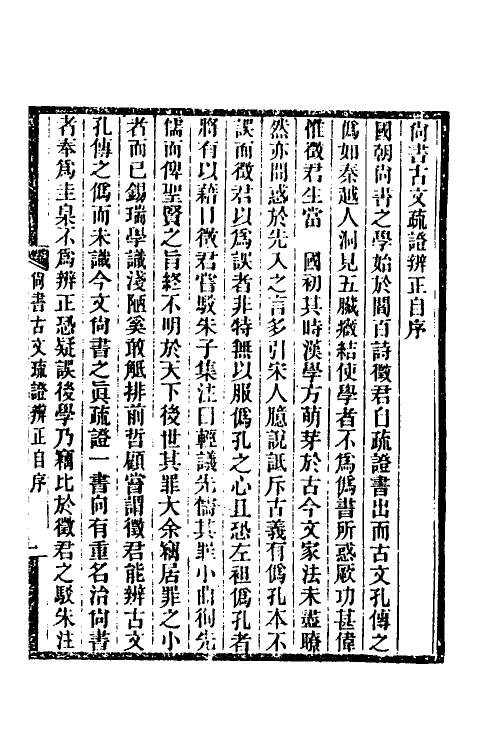 尙書古文疏證辨正自序
國朝尙書之學始於閻百詩徵君自疏證書出而古文孔傳之
僞如秦越人洞見五臟癥結使學者不爲僞書所惑厥功甚偉
惟徵君生當　國初其時漢學方萌芽於古今文家法未盡瞭
然亦間惑於先入之言多引宋人臆說詆斥古義有僞孔本不
誤而徵君以爲誤者非特無以服僞孔之心且恐左祖僞孔者
將有以藉口徵君嘗駁朱子集注曰輕議先儒其罪小曲徇先
儒而俾聖賢之旨終不明於天下後世其罪大余竊居罪之小
者而已錫瑞學識淺陋奚敢觝排前哲顧嘗謂徵君能辨古文
孔傳之僞而未識今文尙書之眞疏證一書向有重名治尙書
者奉爲圭臬不爲辨正恐疑誤後學乃竊比於徵君之駁朱注
尙書古文疏證辨正自序
一